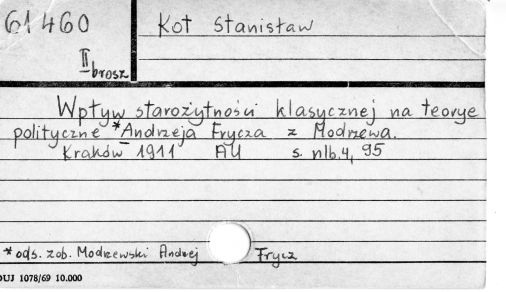 61460
II
brosz
Kot Stanisław
Wpływ starożytności klasycznej na teorye
polityczne *Andrzeja Frycza z Modrzewa.
Kraków 1911 AU s. nlb.4, 95
* ods. zob. Modrzewski Andrzej Frycz
DUJ 1078/69 10.000